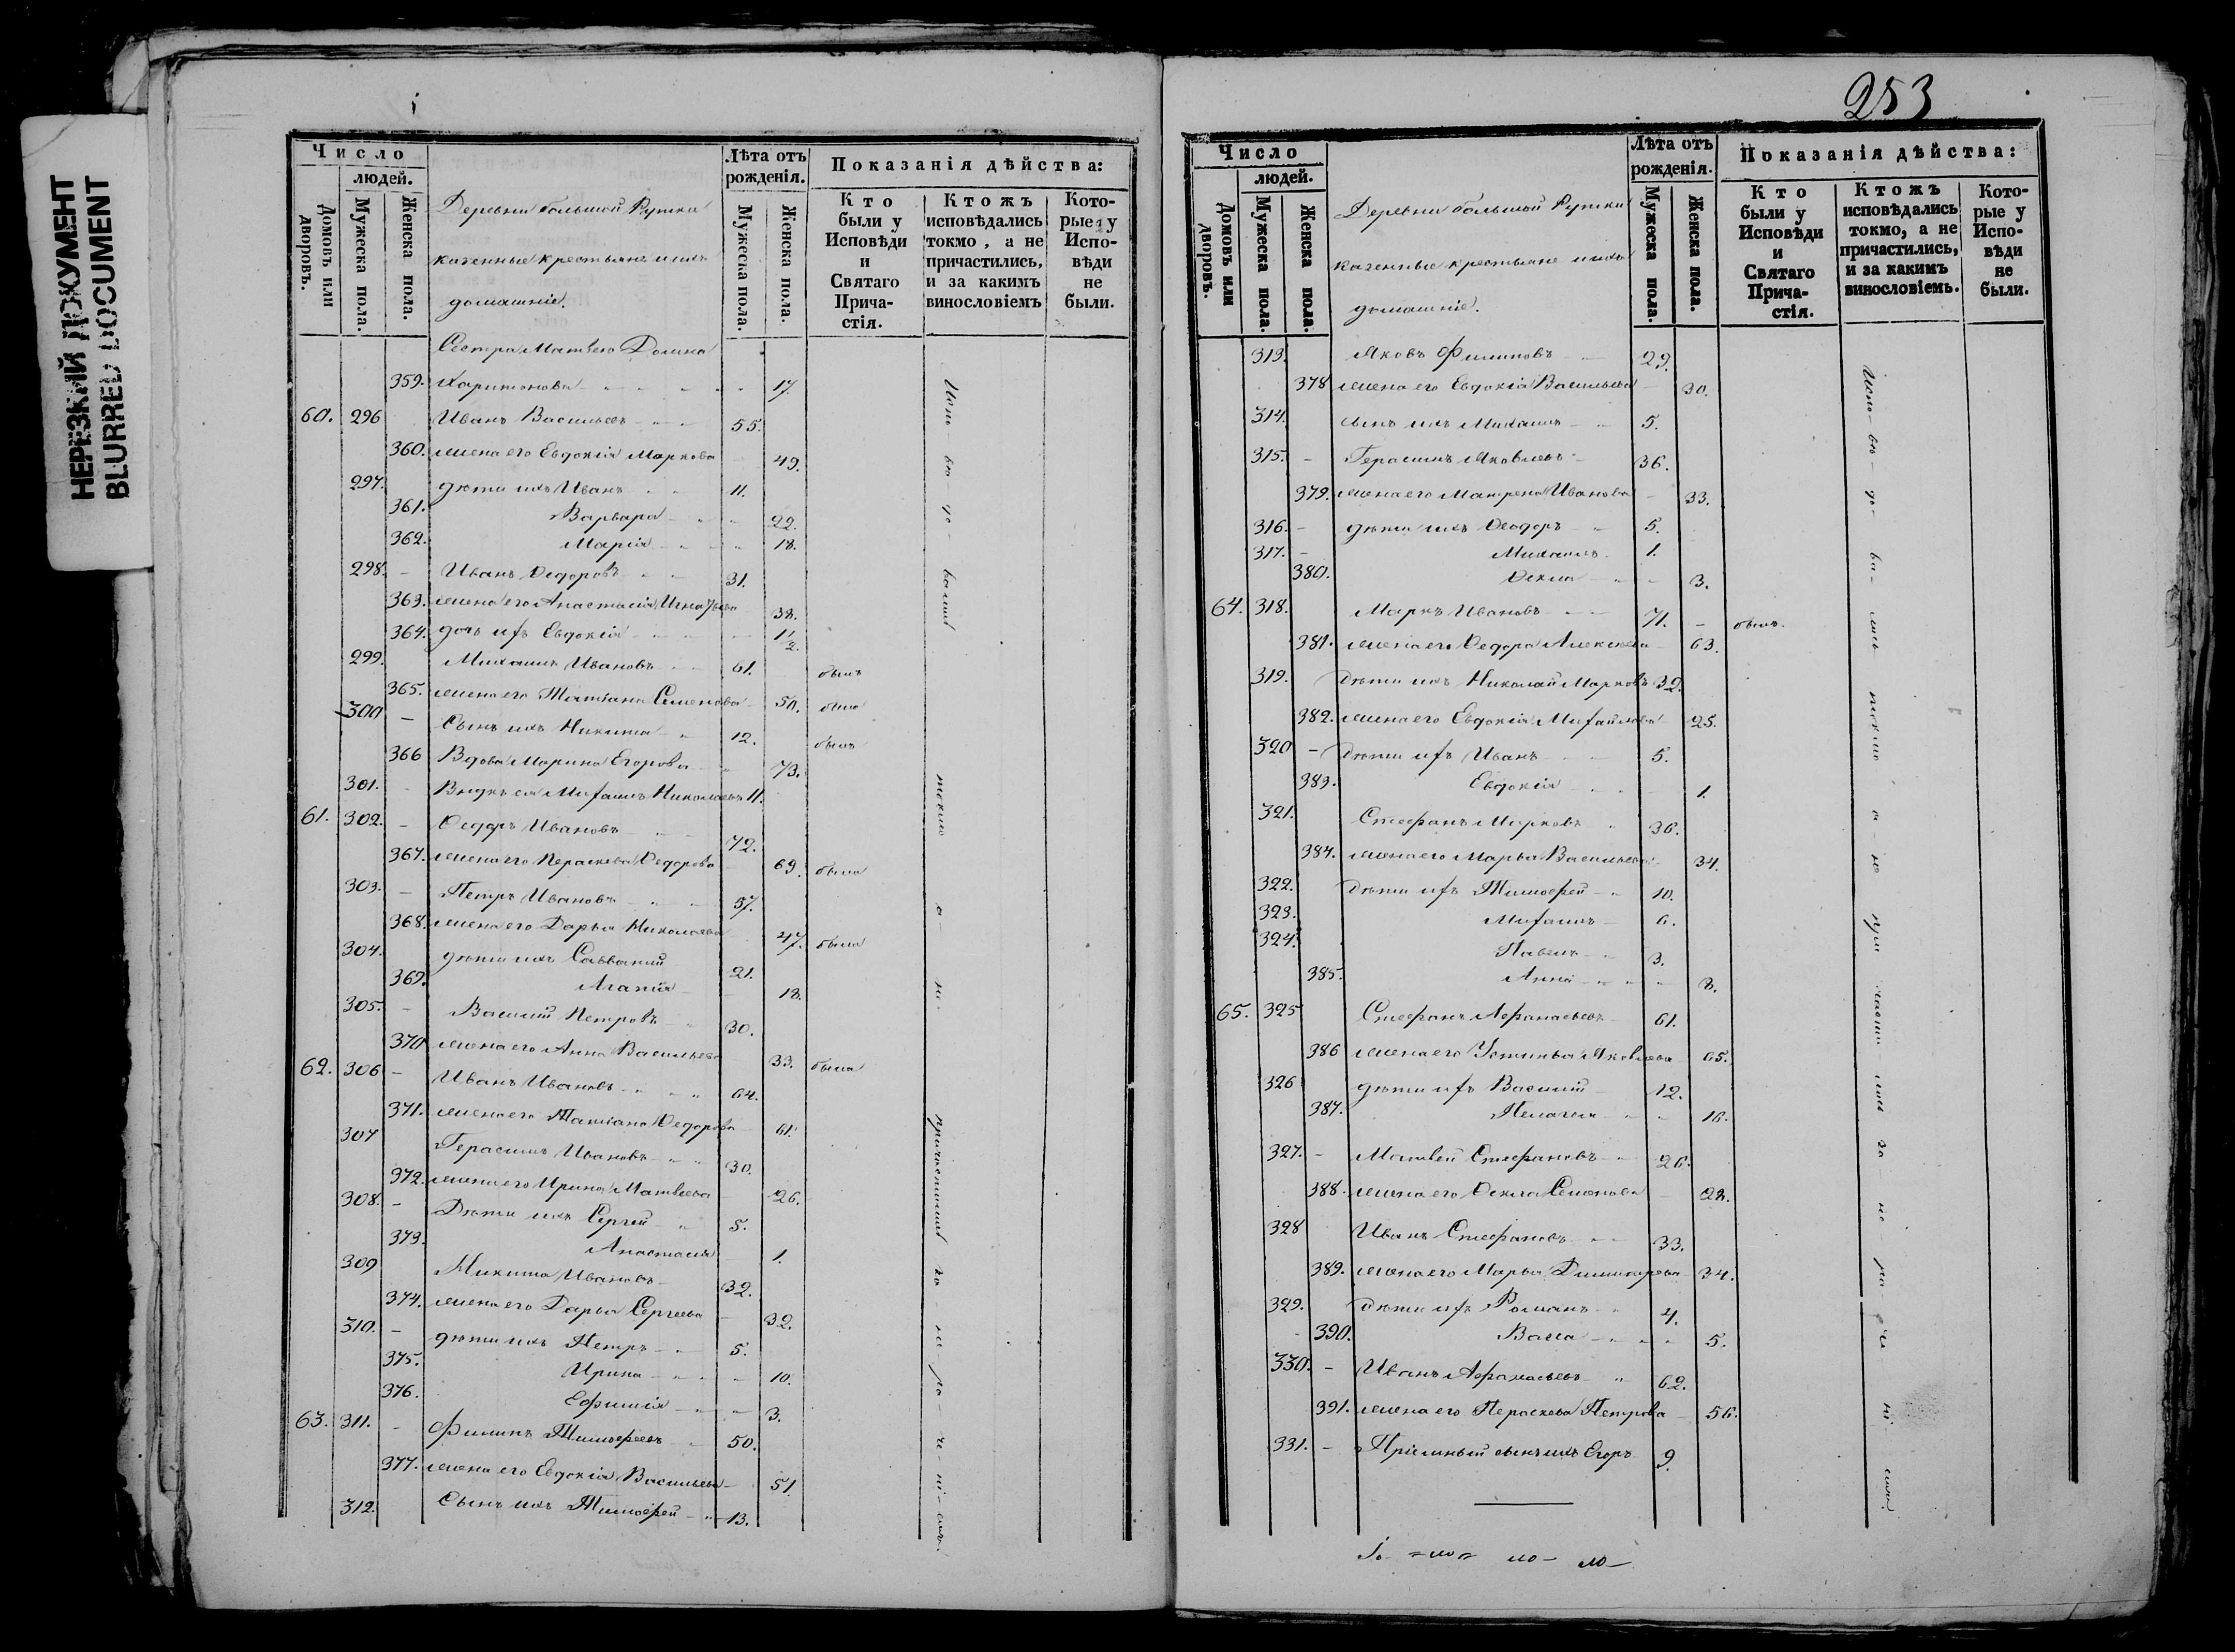 НЕРЕЗКИЙ ДОКУМЕНТ
BLURRED DOCUMENT
Число
людей.
Домовъ или дворовъ.
Мужеска пола.
Женска пола.
Деревни большой Рутки
казенные крестьяне и ихъ
домашніе.
Лѣта отъ рожденія.
Мужеска пола.
Женска пола.
Показанія дѣйства:
Кто были у Исповѣди и Святаго Прича-стія.
Ктожъ исповѣдались токмо, а не причастились, и за какимъ винословіемъ
Кото-рые у Испо-вѣди не были.
Сестра Матвея Домна
359. Харитонова 17.
60. 296 Иванъ Васильевъ 55.
360. жена его Евдокія Маркова 49.
297. дѣти ихъ Иванъ 11.
361. Варвара 22.
362. Марія 18.
298. Иванъ Ѳедоровъ 31.
363. жена его Анастасія Игнатьева 38.
364. дочь ихъ Евдокія 1/2.
299. Михаилъ Ивановъ 61. былъ
365. жена его Татіана Семенова 50. была
300 Сынъ ихъ Никита 12. былъ
366 Вдова Марина Егорова 73.
301. Внукъ ея Михаилъ Николаевъ 11.
61. 302. Ѳедоръ Ивановъ 72.
367. жена его Параскева Ѳедорова 69. была
303. Петръ Ивановъ 57.
368. жена его Дарья Николаева 47. была
304. дѣти ихъ Савватий 21.
369. Агапія 18.
305. Василій Петровъ 30.
370 жена его Анна Васильева 33. была
62. 306 Иванъ Ивановъ 64.
371. жена его Татіана Ѳедорова 61.
307 Герасимъ Ивановъ 30.
372. жена его Ирина Матвеева 26.
308. Дѣти ихъ Сергей 5.
373. Анастасія 1.
309 Никита Ивановъ 32.
374. жена его Дарья Сергеева 32.
310. дѣти ихъ Петръ 5.
375. Ирина 10.
376. Ефимія 3.
63. 311. Филипъ Тимофеевъ 50.
377. жена его Евдокія Васильева 51.
312. Сынъ ихъ Тимофей 13.
Испо-вѣ-до-вались токмо а-не причастились за-не-ра-че-ні-емъ.
253
Число
людей.
Домовъ или дворовъ.
Мужеска пола.
Женска пола.
Деревни большой Рутки
казенные крестьяне и ихъ
домашніе.
Лѣта отъ рожденія.
Мужеска пола.
Женска пола.
Показанія дѣйства:
Кто были у Исповѣди и Святаго Прича-стія.
Ктожъ исповѣдались токмо, а не причастились, и за какимъ винословіемъ.
Кото-рые у Испо-вѣди не были.
313. Яковъ Филиповъ 29.
378 жена его Евдокія Васильева 30.
314. сынъ ихъ Михаилъ 5.
315. Герасимъ Яковлевъ 36.
379. жена его Матрена Иванова 33.
316. дѣти ихъ Ѳеодоръ 5.
317. Михаилъ 1.
380. Ѳекла 3.
64. 318. Маркъ Ивановъ 71. былъ.
381. жена его Ѳедора Алексеева 63.
319. Дѣти ихъ Николай Марковъ 32.
382. жена его Евдокія Михайлова 25.
320 Дѣти ихъ Иванъ 5.
383. Евдокія 1.
321. Стефанъ Марковъ 36.
384. жена его Марья Васильева 34.
322. Дѣти ихъ Тимофей 10.
323. Михаилъ 6.
324. Павелъ 3.
385. Анна 8.
65. 325 Стефанъ Афанасьевъ 61.
386 жена его Устинья Яковлева 65.
326 дѣти ихъ Василій 12.
387. Пелагея 16.
327. Матвей Стефановъ 26.
388. жена его Ѳекла Семенова 28.
328 Иванъ Стефановъ 33.
389. жена его Марья Димитриева 34.
329. дѣти ихъ Романъ 4.
390. Васса 5.
330. Иванъ Афанасьевъ 62.
391. жена его Параскева Петрова 56.
331. Пріемный сынъ ихъ Егоръ 9.
Испо-вѣ-до-ва-лись токмо а-не при част-лись за не ра че ні емъ